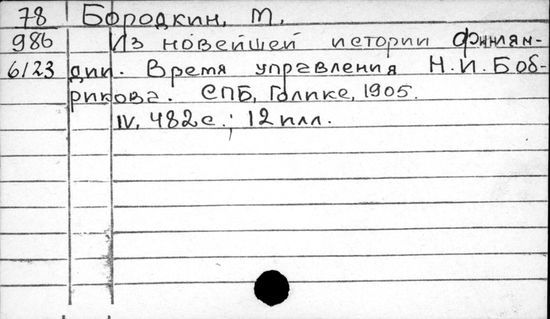 78 Бородкин, М.
986 Из новейшей истории Финлян-
6/23 дии. Время управления Н.И.Боб-
рикова. СПБ, Голике, 1905.
IV, 482 с.; 12 илл.